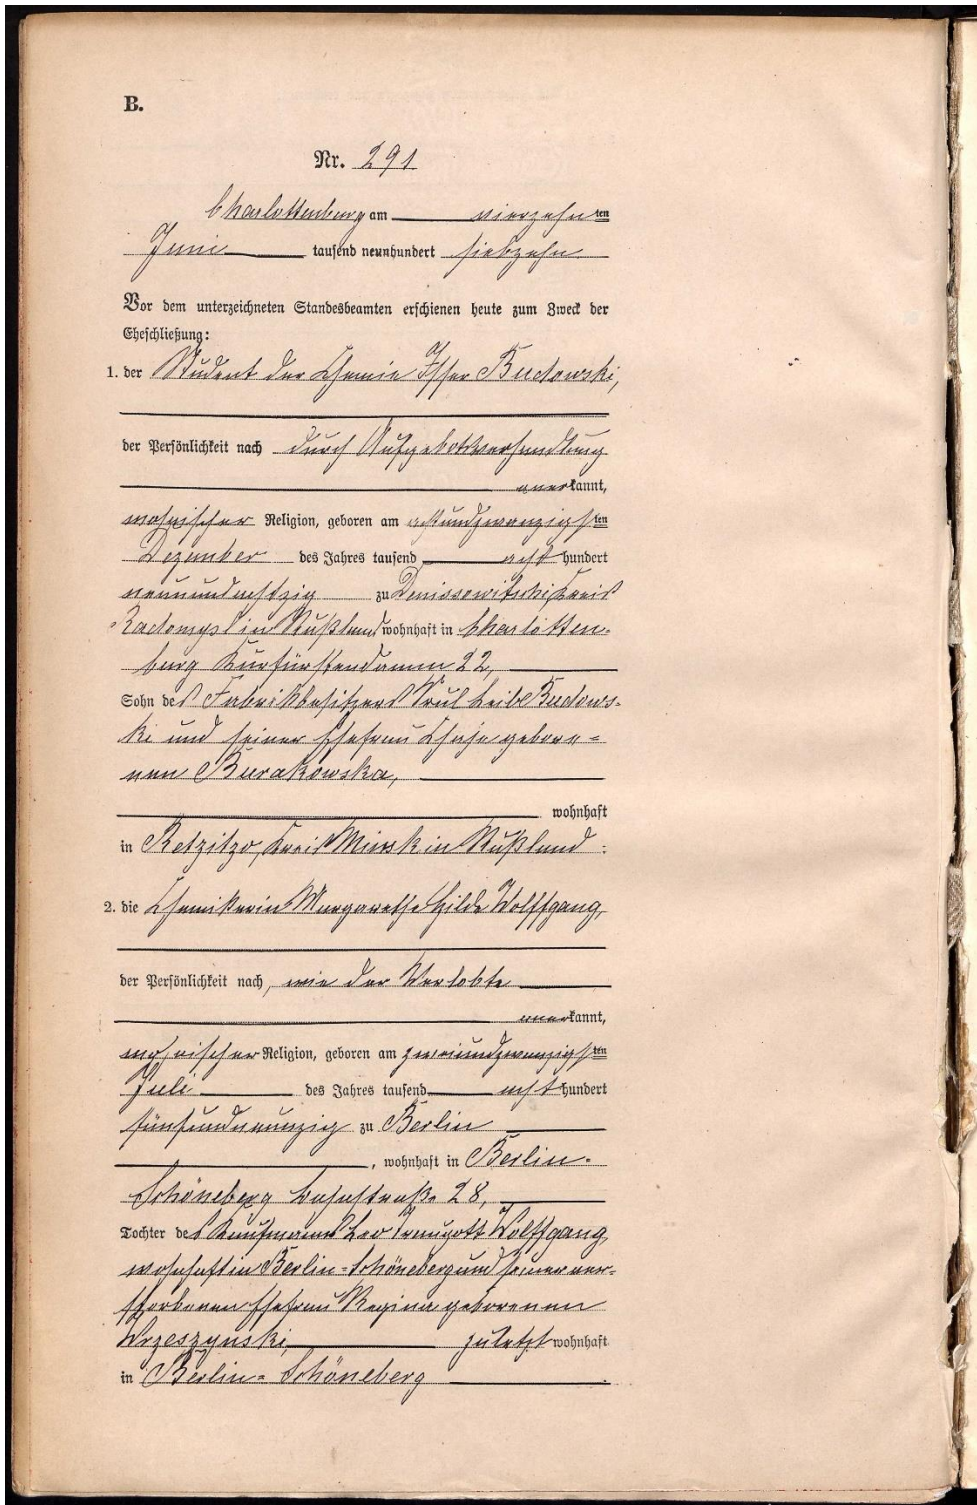 B.
Nr. 291
Charlottenburg am vierzehnten
Juni tausend neunhundert siebzehn.
Vor dem unterzeichneten Standesbeamten erschienen heute zum Zweck der
Eheschließung:
1. der Student der Chemie Isser Budowski,
der Persönlichkeit nach durch Aufgebotsverhandlung
anerkannt,
mosaischer Religion, geboren am achtundzwanzigsten
Dezember des Jahres tausend acht hundert
neunundachtzig zu Denissowitschi, Kreis
Radomysl in Rußland wohnhaft in Charlotten-
burg Kurfürstendamm 22,
Sohn des Fabrikbesitzers Srul Leibe Budows-
ki und seiner Ehefrau Chaje gebore-
nen Burakowska,
wohnhaft
in Retzitzo, Kreis Minsk in Rußland.
2. die Chemikerin Margarethe Hilde Wolffgang,
der Persönlichkeit nach, wie der Verlobte
anerkannt,
mosaischer Religion, geboren am zweiundzwanzigsten
Juli des Jahres tausend acht hundert
fünfundneunzig zu Berlin
, wohnhaft in Berlin-
Schöneberg Bahnstraße 28,
Tochter des Kaufmanns Leo Traugott Wolffgang,
wohnhaft in Berlin-Schöneberg und seiner ver-
storbenen Ehefrau Regina geborenen
Wrzeszynski, zuletzt wohnhaft
in Berlin-Schöneberg.